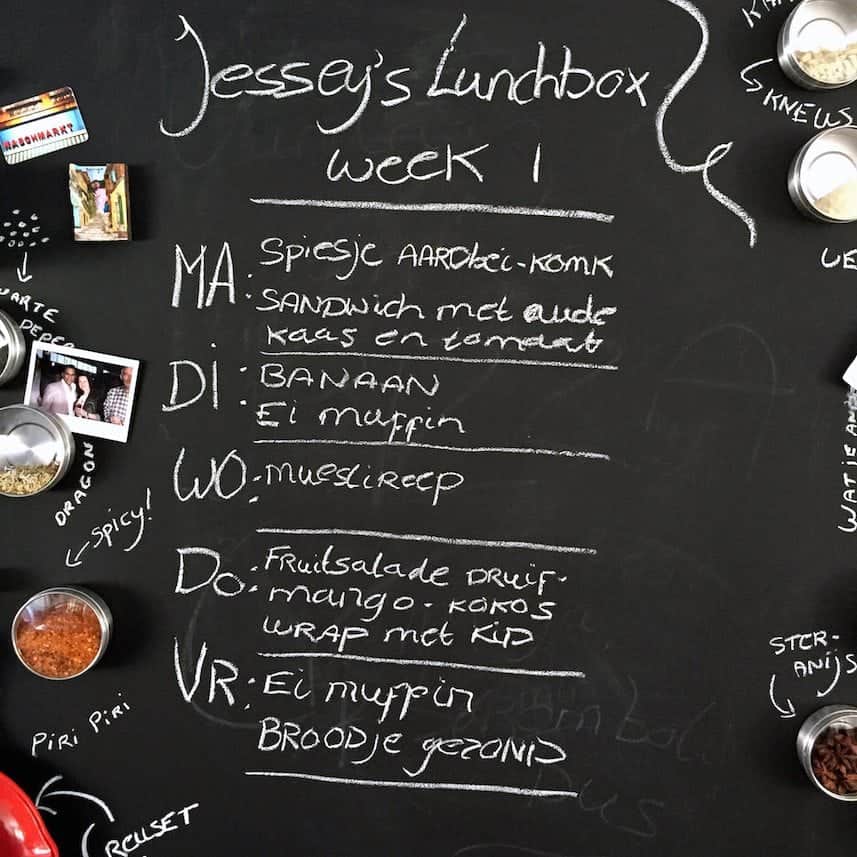 Jessey's Lunchbox
week 1
MA: Spiesje AARDbei-KOMK
SANDWich met oude
kaas en tomaat
Di: BANAAN
Ei muffin
WO: muesLiReep
Do: FRuitsalade DRuif-
mango-KOKOS
WRAP met Kip
VR: Ei muffin
BROODje gezond
WASCHMARKT
PEPER
DRAGON
SPicy!
PiRi PiRi
STER-
ANijS